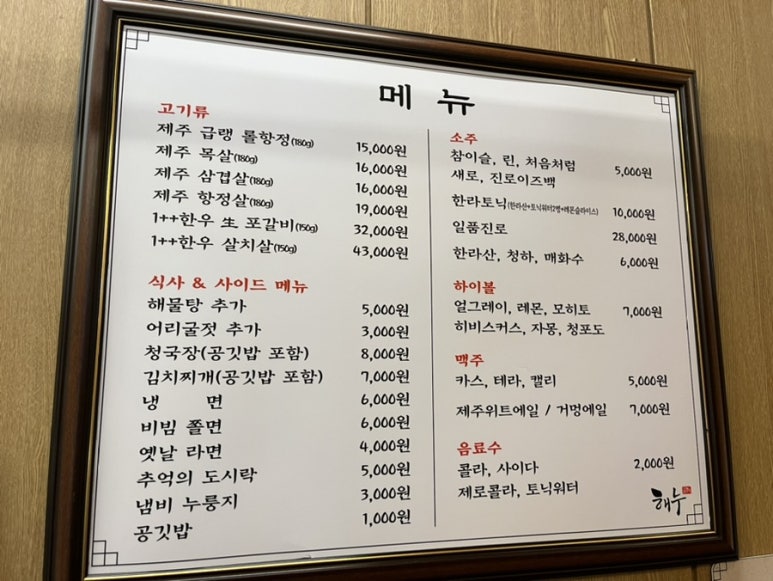 메 뉴
고기류
제주 급랭 롤항정(180g) 15,000원
제주 목살(180g) 16,000원
제주 삼겹살(180g) 16,000원
제주 항정살(180g) 19,000원
1++한우 生 포갈비(150g) 32,000원
1++한우 살치살(150g) 43,000원
식사 & 사이드 메뉴
해물탕 추가 5,000원
어리굴젓 추가 3,000원
청국장(공깃밥 포함) 8,000원
김치찌개(공깃밥 포함) 7,000원
냉 면 6,000원
비빔 쫄면 6,000원
옛날 라면 4,000원
추억의 도시락 5,000원
냄비 누룽지 3,000원
공깃밥 1,000원
소주
참이슬, 린, 처음처럼 5,000원
새로, 진로이즈백
한라토닉(한라산+토닉워터2병+레몬슬라이스) 10,000원
일품진로 28,000원
한라산, 청하, 매화수 6,000원
하이볼
얼그레이, 레몬, 모히토 7,000원
히비스커스, 자몽, 청포도
맥주
카스, 테라, 캘리 5,000원
제주위트에일 / 거멍에일 7,000원
음료수
콜라, 사이다 2,000원
제로콜라, 토닉워터
해누